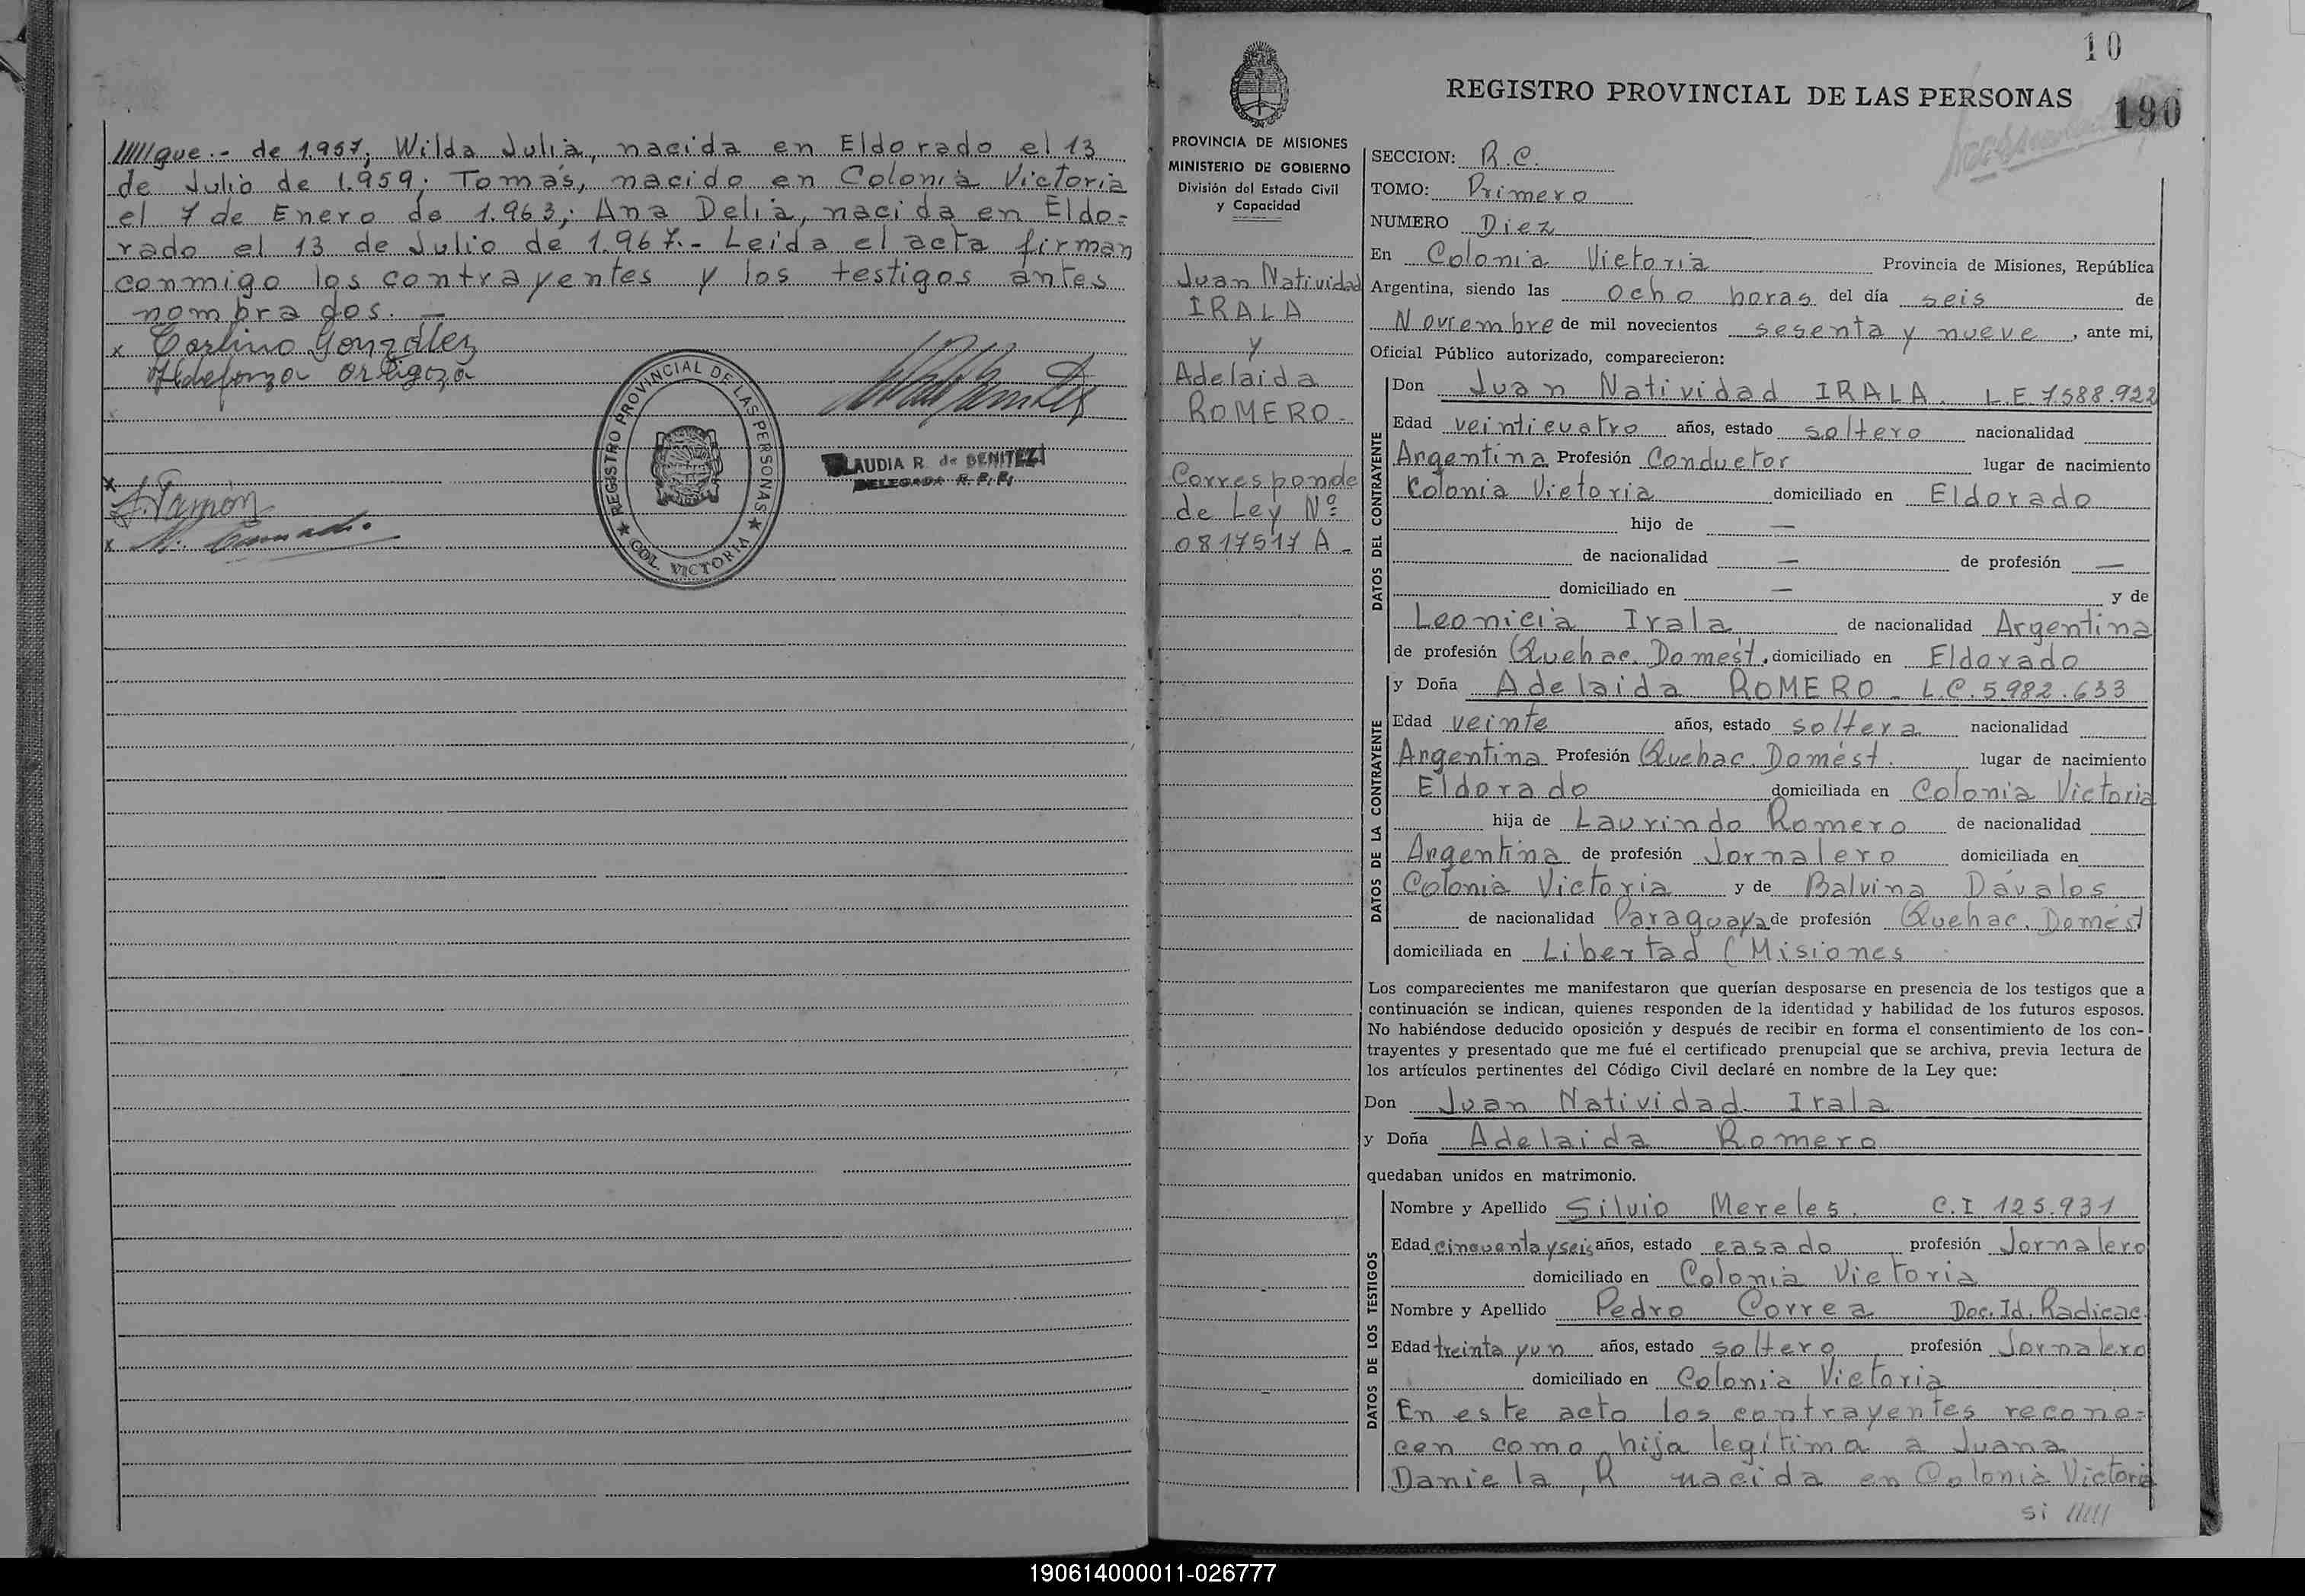 //////gue.- de 1.957; Wilda Julia, nacida en Eldorado el 13
de Julio de 1.959; Tomas, nacido en Colonia Victoria
el 7 de Enero de 1.963; Ana Delia, nacida en Eldo=
rado el 13 de Julio de 1.967.- Leida el acta firman
conmigo los contrayentes y los testigos antes
nombrados. —
x Carlino González
Ildefonza Ortigoza
REGISTRO PROVINCIAL DE LAS PERSONAS
COL. VICTORIA
CLAUDIA R. de BENITEZ
DELEGADA R. P. P.
x
x
10
190
REGISTRO PROVINCIAL DE LAS PERSONAS
PROVINCIA DE MISIONES
MINISTERIO DE GOBIERNO
División del Estado Civil
y Capacidad
Juan Natividad
IRALA
y
Adelaida
ROMERO.
Corresponde
de Ley Nº
0817517 A -
SECCION: R.C.
TOMO: Primero
NUMERO Diez
En Colonia Victoria Provincia de Misiones, República
Argentina, siendo las ocho horas del día seis de
Noviembre de mil novecientos sesenta y nueve, ante mi,
Oficial Público autorizado, comparecieron:
DATOS DEL CONTRAYENTE
Don Juan Natividad IRALA. L.E. 7588.922
Edad veinticuatro años, estado soltero nacionalidad
Argentina Profesión Conductor lugar de nacimiento
Colonia Victoria domiciliado en Eldorado
hijo de —
de nacionalidad — de profesión —
domiciliado en — y de
Leonicia Irala de nacionalidad Argentina
de profesión Quehac. Domést. domiciliado en Eldorado
DATOS DE LA CONTRAYENTE
y Doña Adelaida ROMERO - L.C. 5.982.633
Edad veinte años, estado soltera nacionalidad
Argentina Profesión Quehac. Domést. lugar de nacimiento
Eldorado domiciliada en Colonia Victoria
hija de Laurindo Romero de nacionalidad
Argentina de profesión Jornalero domiciliada en
Colonia Victoria y de Balvina Dávalos
de nacionalidad Paraguaya de profesión Quehac. Domést
domiciliada en Libertad (Misiones
Los comparecientes me manifestaron que querían desposarse en presencia de los testigos que a
continuación se indican, quienes responden de la identidad y habilidad de los futuros esposos.
No habiéndose deducido oposición y después de recibir en forma el consentimiento de los con-
trayentes y presentado que me fué el certificado prenupcial que se archiva, previa lectura de
los artículos pertinentes del Código Civil declaré en nombre de la Ley que:
Don Juan Natividad Irala
y Doña Adelaida Romero
quedaban unidos en matrimonio.
DATOS DE LOS TESTIGOS
Nombre y Apellido Silvio Mereles. C.I 125.931
Edad cincuenta y seis años, estado casado profesión Jornalero
domiciliado en Colonia Victoria
Nombre y Apellido Pedro Correa Doc. Id. Radicac.
Edad treinta y un años, estado soltero profesión Jornalero
domiciliado en Colonia Victoria
En este acto los contrayentes recono=
cen como hija legítima a Juana
Daniela, R nacida en Colonia Victoria
si //////
190614000011-026777